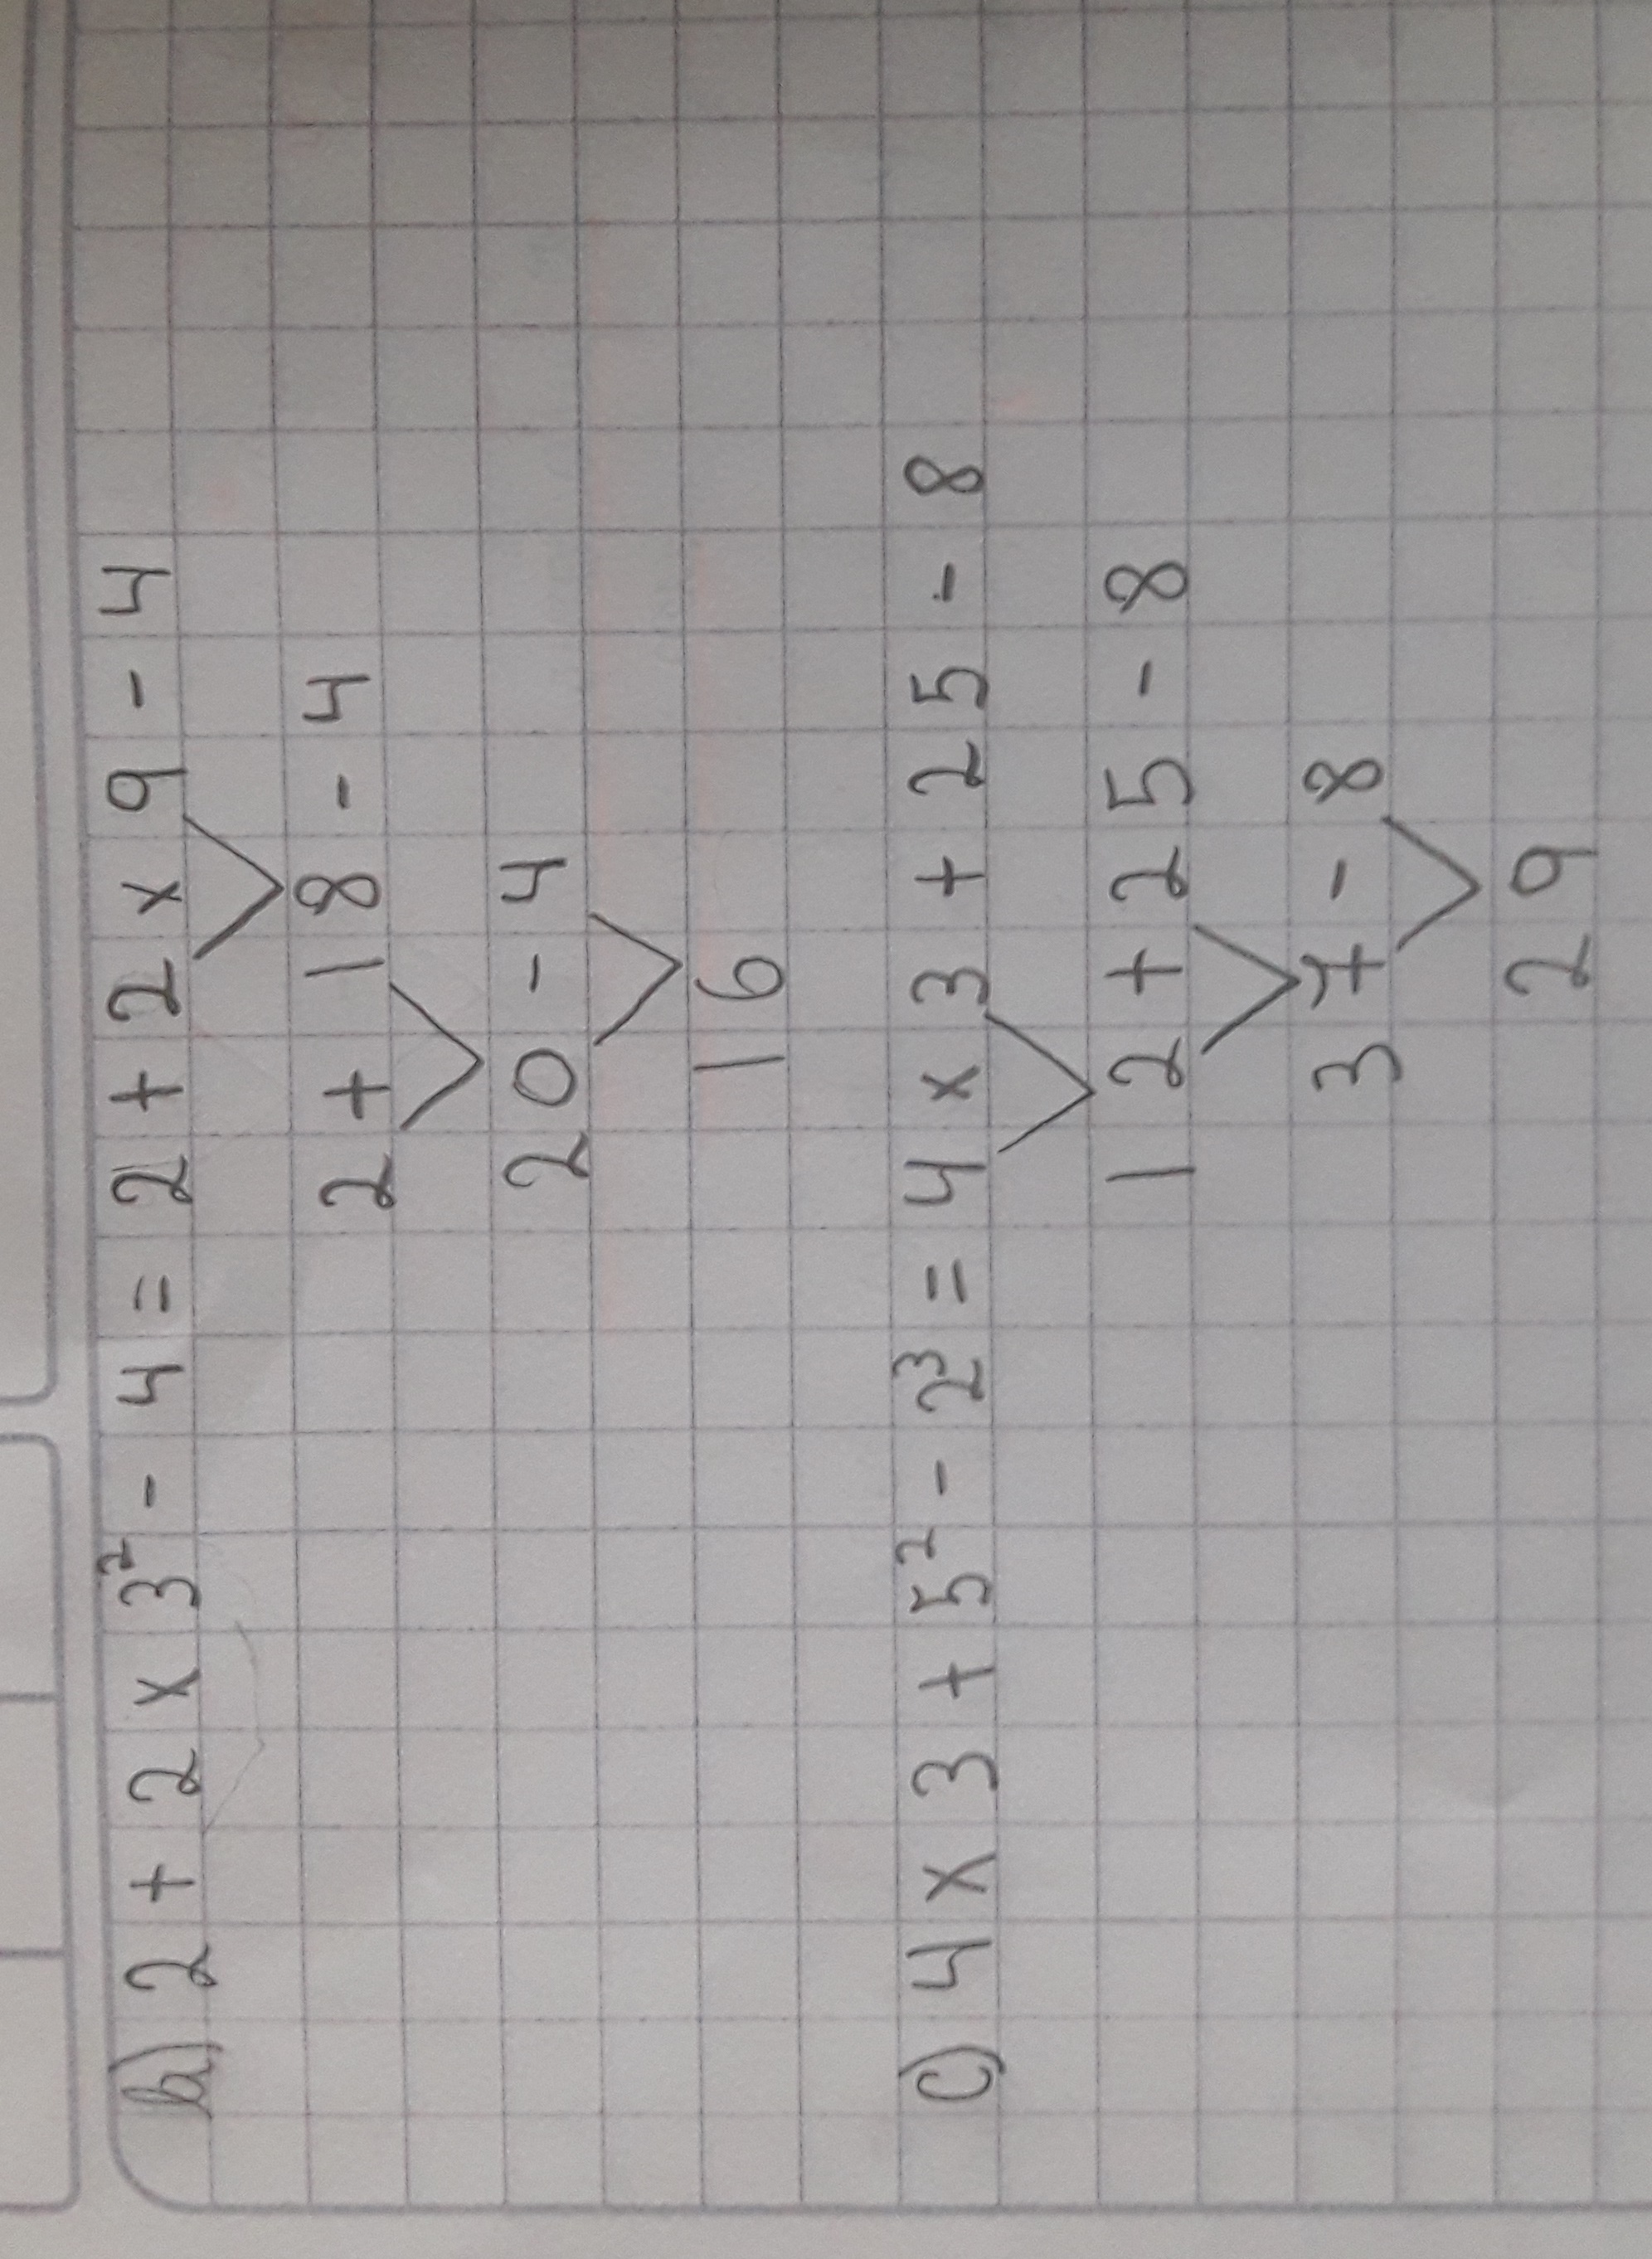 b) 2 + 2 x 3² - 4 = 2 + 2 x 9 - 4
2 + 18 - 4
20 - 4
16
c) 4 x 3 + 5² - 2³ = 4 x 3 + 25 - 8
12 + 25 - 8
37 - 8
29